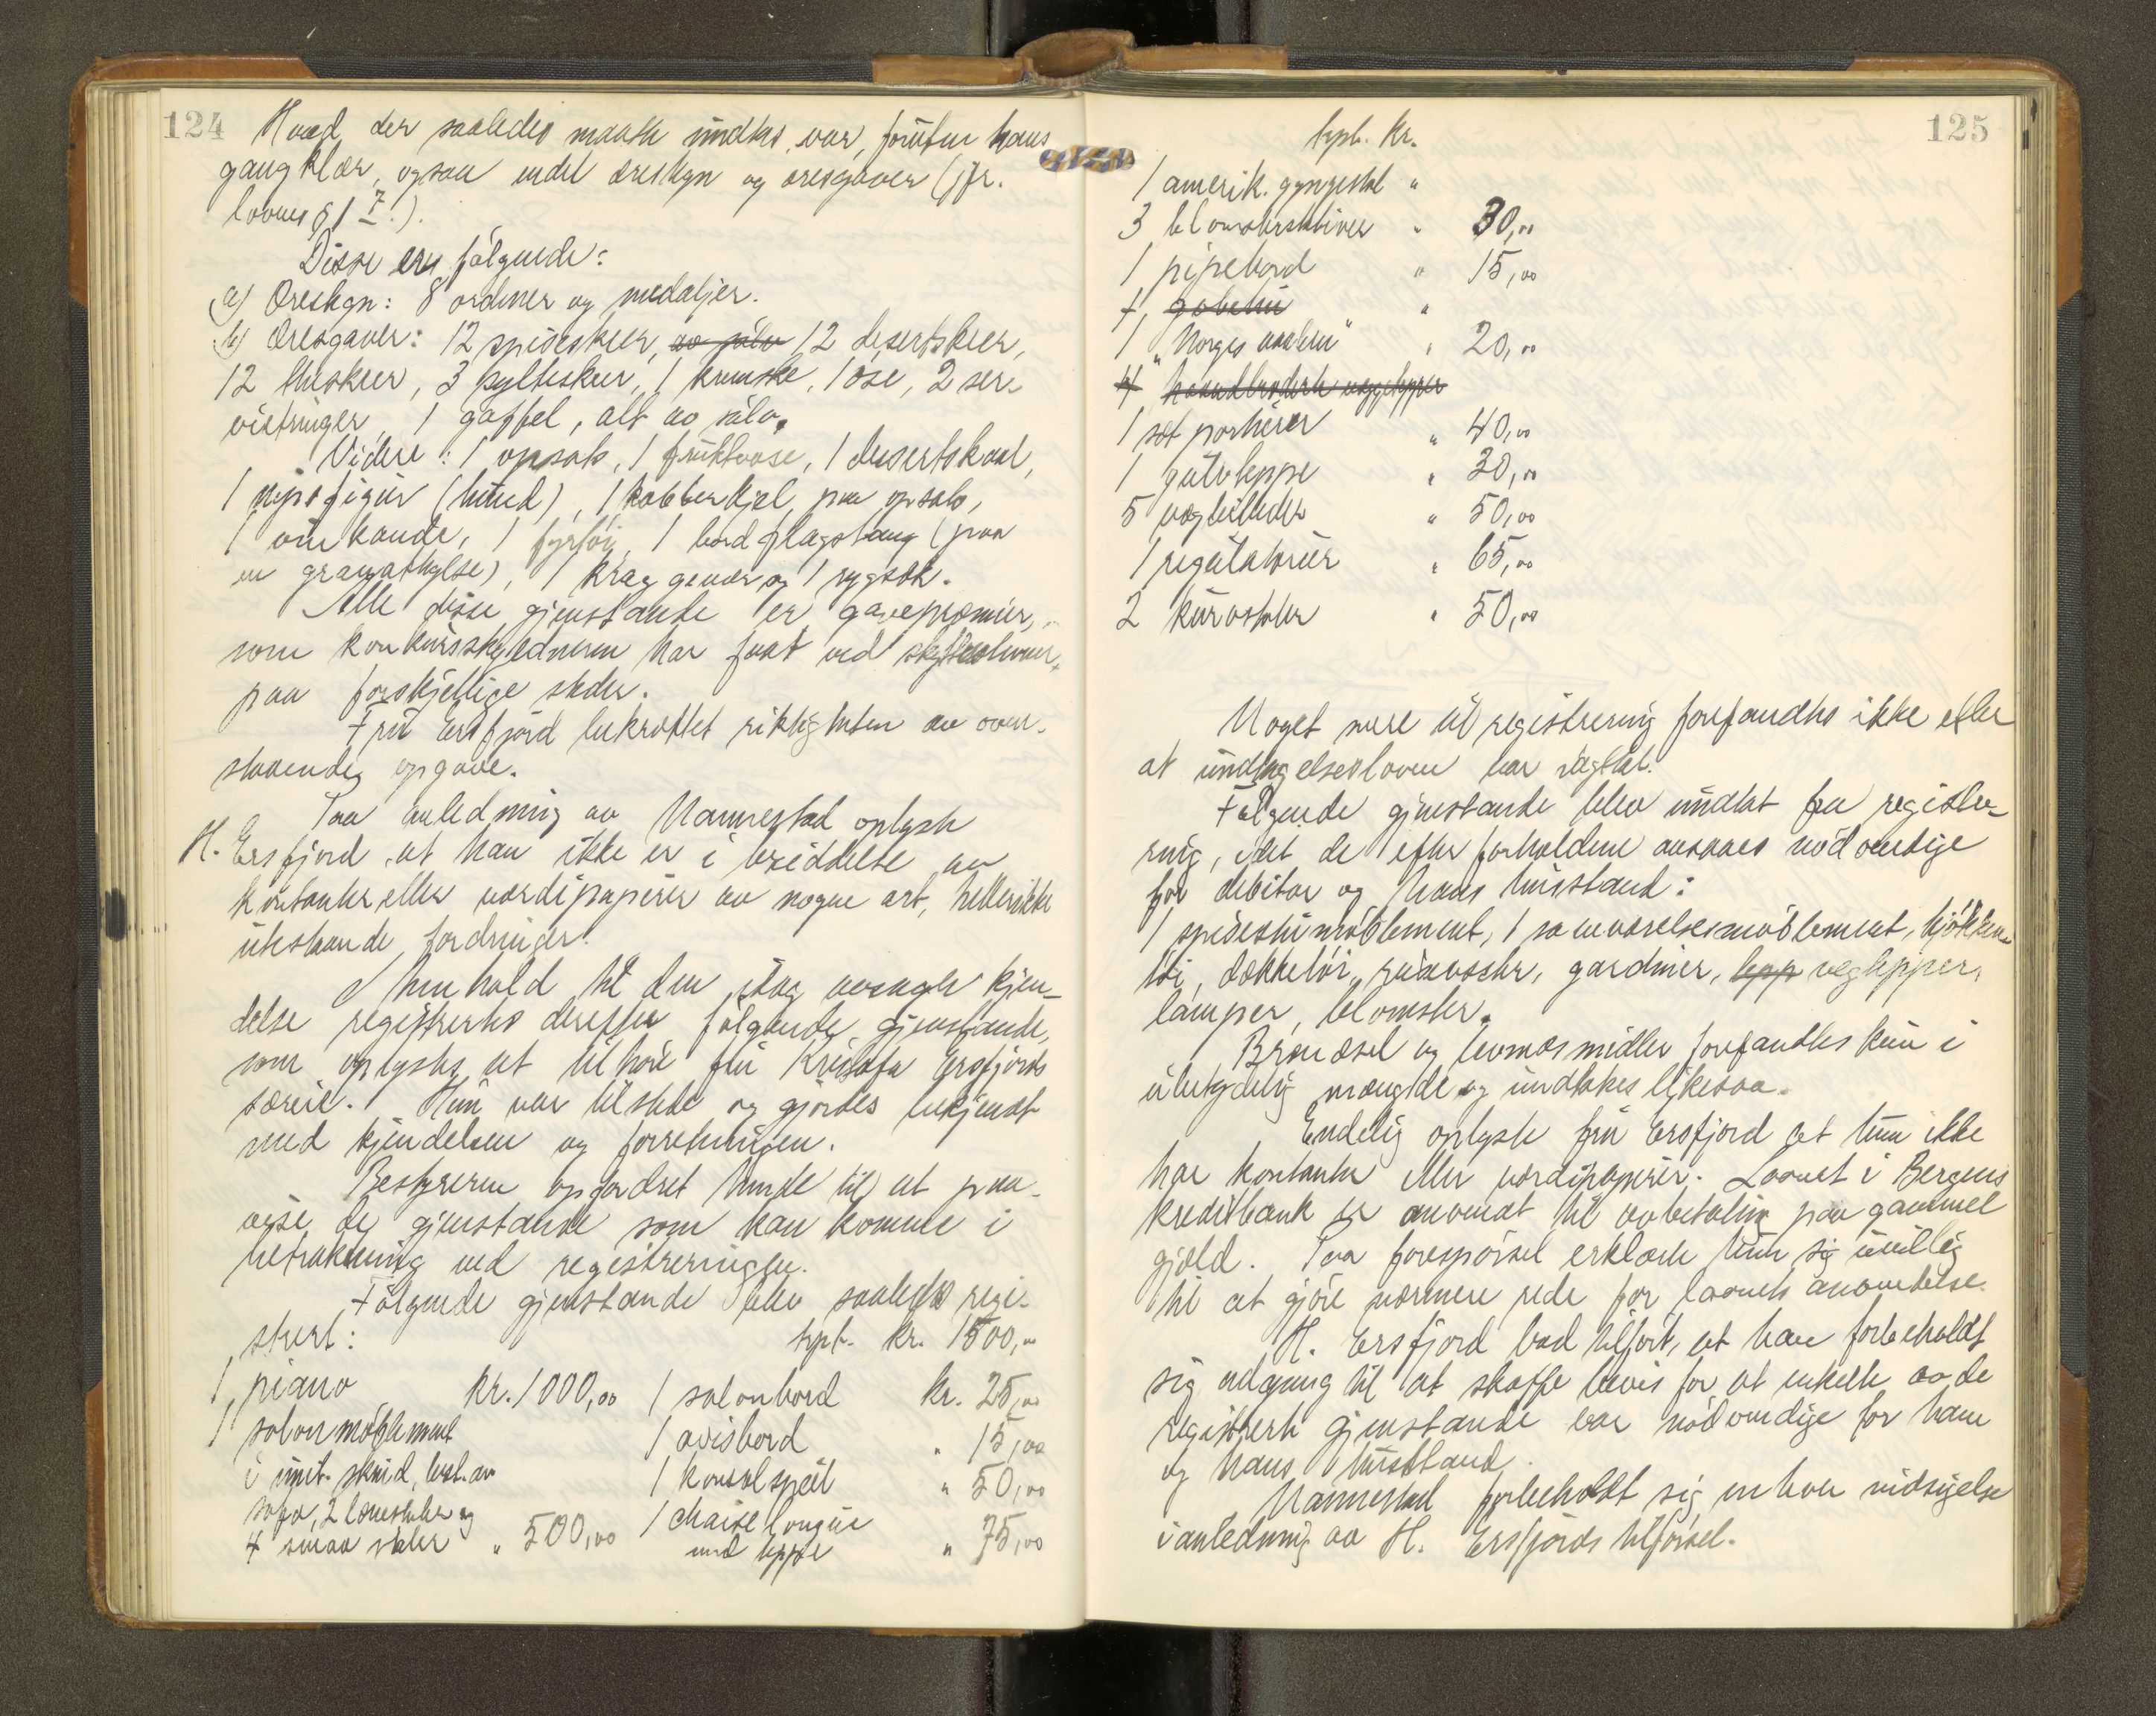 124
Hvad der saaledes maatte undtas, var, foruten hans
gangklær, ogsaa endel ærestegn og æresgaver (jfr.
lovens § 1 I 7.).
Disse eru følgende:
a) Ærestegn: 8 ordner og medaljer.
b) Æresgaver: 12 spiseskeer, av sølv 12 desertskeer,
12 theskeer, 3 sylteskeer, 1 kremske, 1 øse, 2 ser-
vietringer, 1 gaffel, alt av sølv.
Videre: 1 opsats, 1 fruktvase, 1 desertskaal,
1 nipsfigur (hund), 1 kobberkjel paa opsats,
1 vinkande, 1 fyrtøi, 1 bordflagstang (paa
en granathylse), 1 krag gevær og 1 rygsæk.
Alle disse gjenstande er gavepræmier,
som konkursskyldneren har faat ved skytterstevner
paa forskjellige steder.
Fru Ersfjord bekræftet riktigheten av oven-
staaende opgave.
Paa anledning av Nannestad oplyste
H. Ersfjord, at han ikke er i besiddelse av
kontanter eller værdipapirer av nogen art, heller ikke
utestaaende fordringer.
I henhold til den idag avsagte kjen-
delse registrertes derefter følgende gjenstande,
som oplystes at tilhøre fru Kristofa Ersfjords
særeie. Hun var tilstede og gjordes bekjendt
med kjendelsen og forretningen.
Bestyreren opfordret hende til at paa-
vise de gjenstande som kan komme i
betraktning ved registreringen.
Følgende gjenstande blev saaledes regi-
strert:
1 piano kr. 1000,00
1 salonmøblement
i imit. skind, best. av
sofa, 2 lænestoler og
4 smaa stoler " 500,00
trpt. kr. 1500,00
1 salonbord kr. 25,00
1 avisbord " 15,00
1 konsolspeil " 50,00
1 chaiselongue
med teppe " 75,00
125
trpt. kr.
1 amerik. gyngestol "
3 blomsterskiver " 30,00
1 pipebord " 15,00
1 gobelin "
1 "Norges vaaben" " 20,00
4 haandbroderte vægtepper
1 sæt portierer " 40,00
1 gulvteppe " 30,00
5 vægbilleder " 50,00
1 regulatorur " 65,00
2 kurvstoler " 50,00
Noget mere til registrering forefandtes ikke efter
at undtagelsesloven var iagttat.
Følgende gjenstande blev undtat fra registre-
ring, idet de efter forholdene ansaaes nødvendige
for debitor og hans husstand:
1 spisestuemøblement, 1 soveværelsesmøblement, kjøkken-
tøi, dækketøi, gardiner, tepp vegtepper,
lamper, blomster.
Brændsel og levnedsmidler forefandtes kun i
ubetydelig mængde og undtokes likesaa.
Endelig oplyste fru Ersfjord at hun ikke
har kontanter eller værdipapirer. Laanet i Bergens
kreditbank er anvendt til avbetaling paa gammel
gjæld. Paa forespørsel erklærte hun sig uvillig
til at gjøre nærmere rede for laanets anvendelse.
H. Ersfjord bad tilført, at han forbeholdt
sig adgang til at skaffe bevis for at enkelte av de
registrerte gjenstande var nødvendige for ham
og hans husstand.
Nannestad forbeholdt sig enhver indsigelse
i anledning av H. Ersfjords tilførsel.